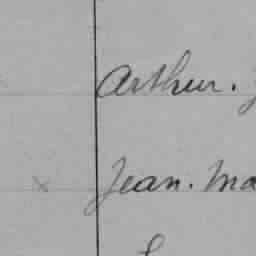 Arthur.
× Jean. Ma